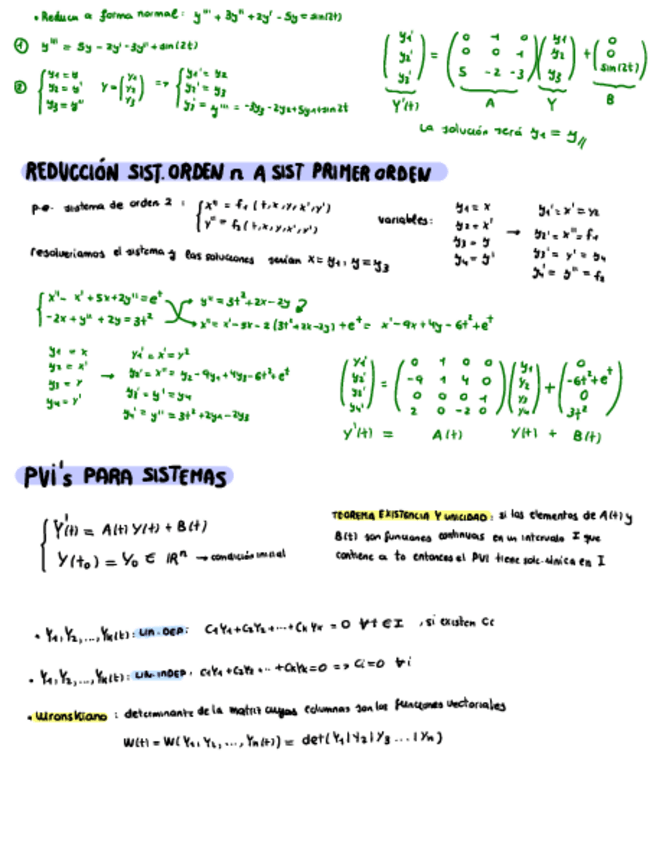 • Reduce a forma normal: y''' + 3y'' + 2y' - 5y = sin(2t)
① y''' = 5y - 2y' - 3y'' + sin(2t)
② { y1 = y  y2 = y'  y3 = y''  Y = (y1 y2 y3) => { y1' = y2  y2' = y3  y3' = y''' = -3y3 - 2y2 + 5y1 + sin2t
(y1' y2' y3') = (0 1 0 / 0 0 1 / 5 -2 -3) (y1 y2 y3) + (0 0 sin(2t))
Y'(t) A Y B
La solución será y1 = y //
REDUCCIÓN SIST. ORDEN n A SIST PRIMER ORDEN
p.e. sistema de orden 2: { x'' = f1(t,x,y,x',y')  y'' = f2(t,x,y,x',y')
variables: y1 = x  y2 = x'  y3 = y  y4 = y' → y1' = x' = y2  y2' = x'' = f1  y3' = y' = y4  y4' = y'' = f2
resolveríamos el sistema y las soluciones serían x = y1, y = y3
{ x'' - x' + 5x + 2y'' = e^t  → y'' = 3t² + 2x - 2y
-2x + y'' + 2y = 3t²  → x'' = x' - 5x - 2(3t² + 2x - 2y) + e^t = x' - 9x + 4y - 6t² + e^t
y1 = x  y1' = x' = y²
y2 = x' → y2' = x'' = y2 - 9y1 + 4y3 - 6t² + e^t
y3 = y  y3' = y' = y4
y4 = y'  y4' = y'' = 3t² + 2y1 - 2y3
(y1' y2' y3' y4') = (0 1 0 0 / -9 1 4 0 / 0 0 0 1 / 2 0 -2 0) (y1 y2 y3 y4) + (0 -6t²+e^t 0 3t²)
Y'(t) = A(t) Y(t) + B(t)
PVi's PARA SISTEMAS
{ Y'(t) = A(t) Y(t) + B(t)
Y(t0) = Y0 ∈ IR^n → condición inicial
TEOREMA EXISTENCIA Y UNICIDAD: si los elementos de A(t) y
B(t) son funciones continuas en un intervalo I que
contiene a t0 entonces el PVI tiene sol. única en I
• Y1, Y2, ..., Yk(t): LIN. DEP: C1Y1 + C2Y2 + ... + CkYk = 0 ∀t ∈ I, si existen Ci
• Y1, Y2, ..., Yk(t): LIN. INDEP. C1Y1 + C2Y2 + ... + CkYk = 0 => Ci = 0 ∀i
• Wronskiano: determinante de la matriz cuyas columnas son las funciones vectoriales
W(t) = W(Y1, Y2, ..., Yn(t)) = det(Y1 | Y2 | Y3 ... | Yn)